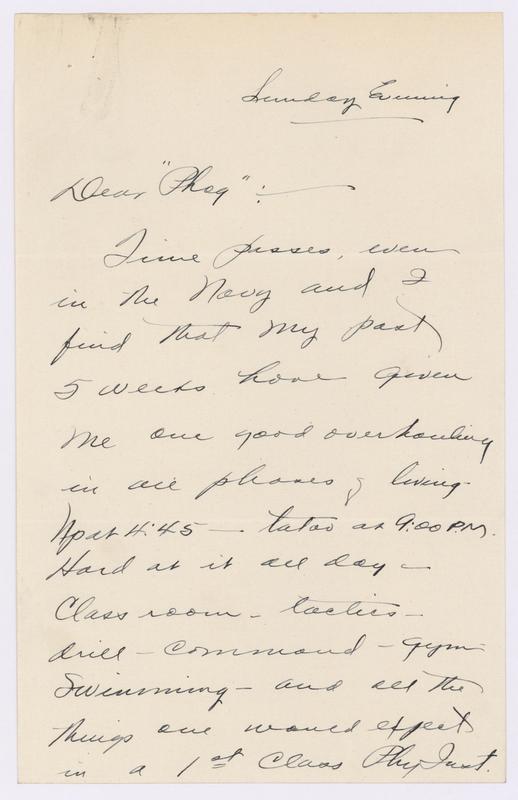 Sunday Evening
Dear "Phog":
Time passes, even
in the Navy and I
find that my past
5 weeks have given
me one good overhauling
in all phases of living.
Up at 4:45 — tatoo at 9:00 P.M.
Hard at it all day —
Class room - tactics -
drill - command - gym
Swimming - and all the
things one would expect
in a 1st Class Phy. Inst.